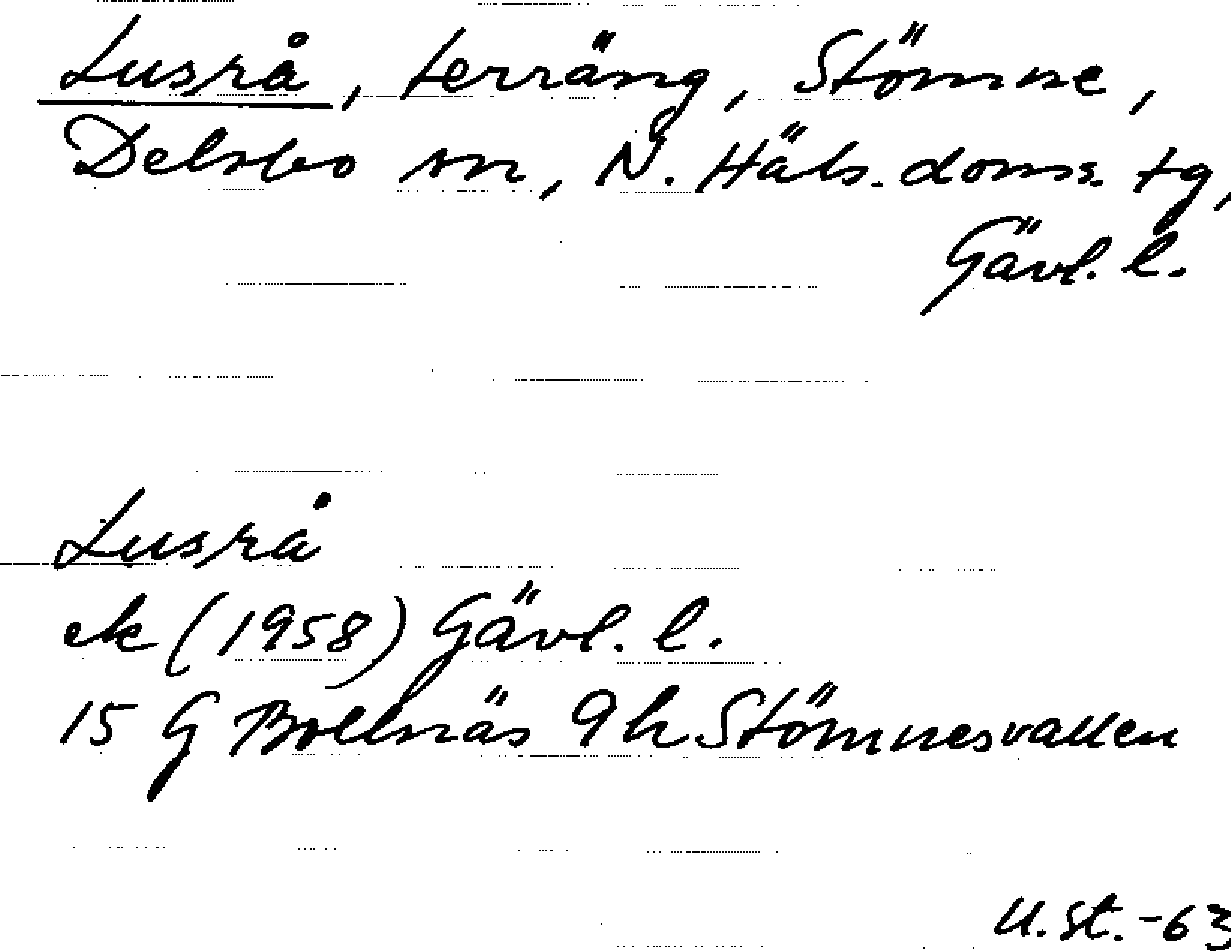 Lusrå, terräng, Stömne,
Delsbo sn, N. Häls. doms. tg,
Gävl. l.
Lusrå
ek (1958) Gävl. l.
15 G Bollnäs 9h Stömnesvallen
U.St.-63